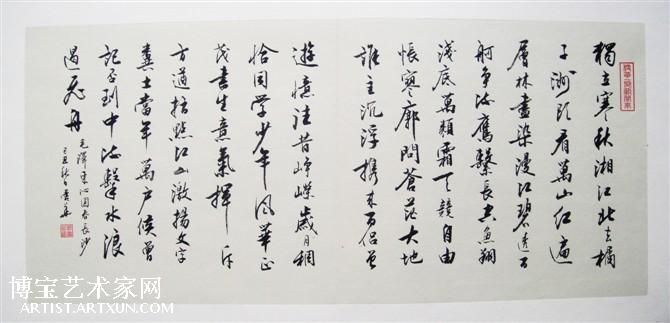 獨立寒秋湘江北去橘
子洲头看萬山红遍
層林盡染漫江碧透百
舸争流鷹擊長空魚翔
淺底萬類霜天競自由
悵寥廓問蒼茫大地
誰主沉浮携来百侣曾
遊憶往昔崢嶸歲月稠
恰同学少年風華正
茂書生意氣揮斥
方遒指點江山激揚文字
糞土當年萬户侯曾
記否到中流擊水浪
遏飛舟
毛澤東沁園春長沙
己丑秋日
博宝艺术家网
ARTIST.ARTXUN.COM